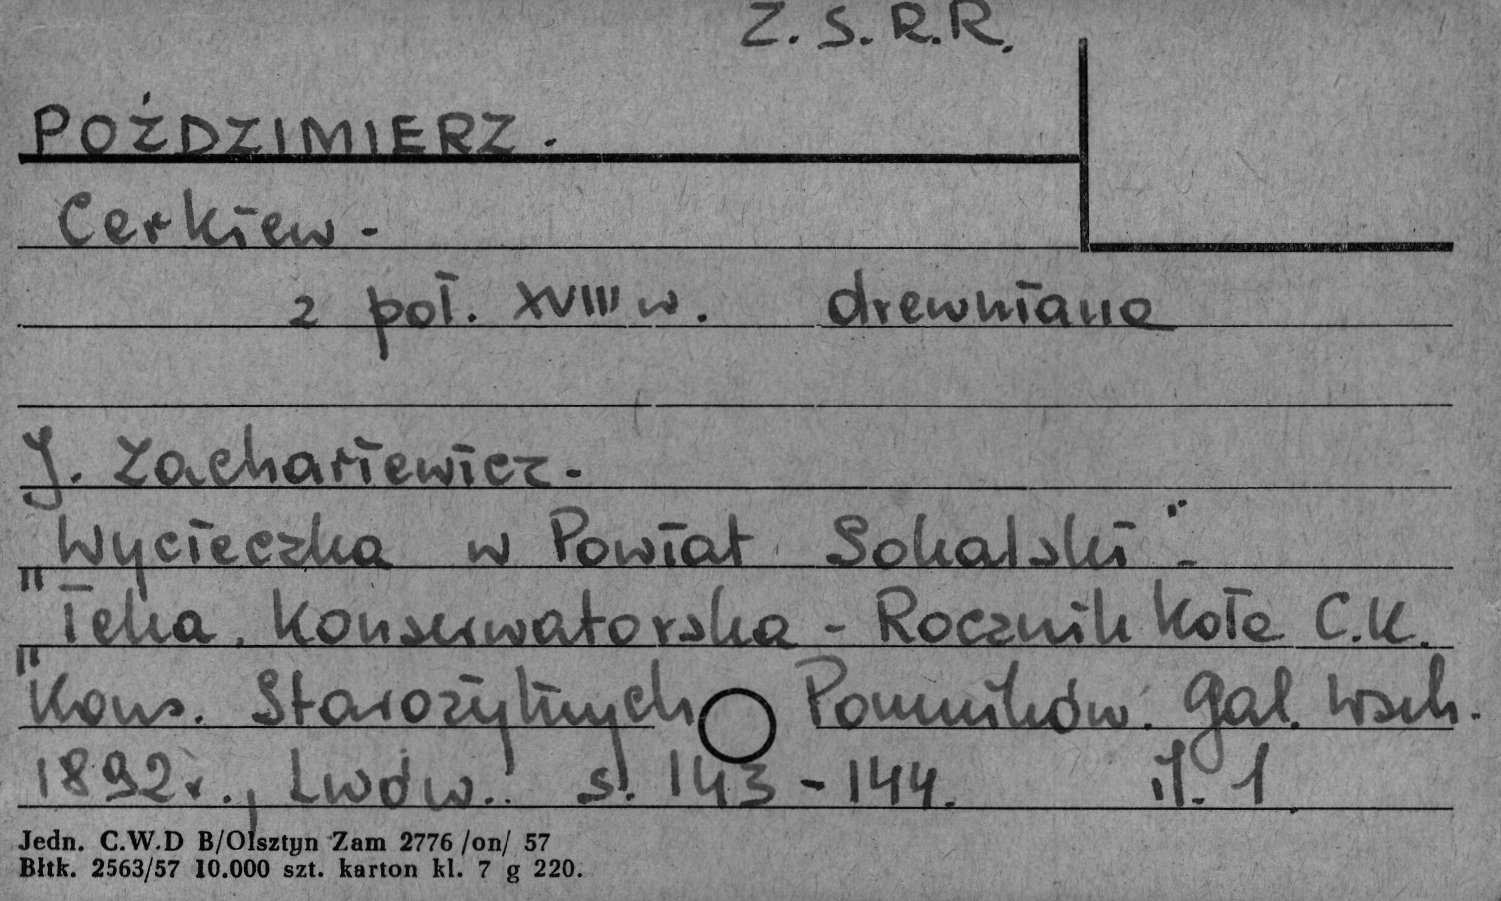 Z. S. R. R.
POŹDZIMIERZ.
Cerkiew -
z poł. XVIII w. drewniana
J. Zachariewicz -
Wycieczka w Powiat Sokalski" -
"Teka Konserwatorska - Rocznik Koła C.K.
"Kons. Starożytnych Pomników. Gal. Wsch.
1892 r., Lwów.. s. 143 - 144. il. 1
Jedn. C.W.D B/Olsztyn Zam 2776 /on/ 57
Błtk. 2563/57 10.000 szt. karton kl. 7 g 220.